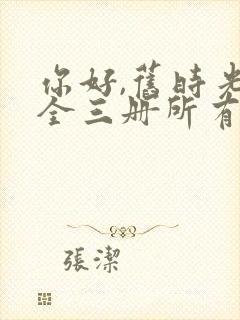 你好,舊時光
全三册所有
張潔